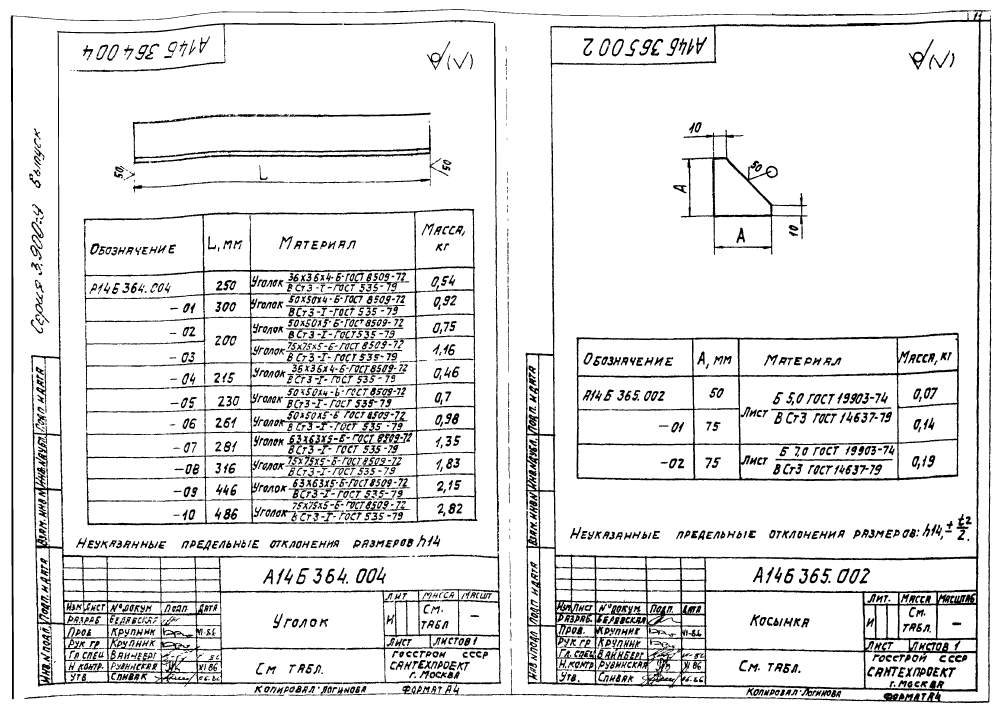 11
Серия 3.900-9 Выпуск
А14Б 364 004
√(√)
50
L
50
Обозначение L, мм Материал Масса, кг
А14Б 364.004 250 Уголок 36х36х4-Б-ГОСТ 8509-72 / ВСт3-I-ГОСТ 535-79 0,54
-01 300 Уголок 50х50х4-Б-ГОСТ 8509-72 / ВСт3-I-ГОСТ 535-79 0,92
-02 200 Уголок 50х50х5-Б-ГОСТ 8509-72 / ВСт3-I-ГОСТ 535-79 0,75
-03 Уголок 75х75х5-Б-ГОСТ 8509-72 / ВСт3-I-ГОСТ 535-79 1,16
-04 215 Уголок 36х36х4-Б-ГОСТ 8509-72 / ВСт3-I-ГОСТ 535-79 0,46
-05 230 Уголок 50х50х4-Б-ГОСТ 8509-72 / ВСт3-I-ГОСТ 535-79 0,7
-06 261 Уголок 50х50х5-Б ГОСТ 8509-72 / ВСт3-I-ГОСТ 535-79 0,98
-07 281 Уголок 63х63х5-Б-ГОСТ 8509-72 / ВСт3-I-ГОСТ 535-79 1,35
-08 316 Уголок 75х75х5-Б-ГОСТ 8509-72 / ВСт3-I-ГОСТ 535-79 1,83
-09 446 Уголок 63х63х5-Б-ГОСТ 8509-72 / ВСт3-I-ГОСТ 535-79 2,15
-10 486 Уголок 75х75х5-Б-ГОСТ 8509-72 / ВСт3-I-ГОСТ 535-79 2,82
Неуказанные предельные отклонения размеров h14
Инв.N подл. Подп. и дата Взам. инв N Инв.N дубл. Подп. и дата
А14Б 364. 004
Изм Лист N° докум Подп Дата
Разраб Беляевская
Пров Крупник XI-86
Рук гр Крупник
Гл спец Вайнберг
Н.контр. Рувинская XI 86
Утв Спивак
Уголок
См табл.
Лит Масса Масшт
И См. табл –
Лист Листов 1
Госстрой СССР
Сантехпроект
г. Москва
Копировал Логинова Формат А4
А14Б 365 002
√(√)
10
50
А
А
10
Обозначение А, мм Материал Масса, кг
А14Б 365.002 50 Лист Б 5,0 ГОСТ 19903-74 / ВСт3 ГОСТ 14637-79 0,07
-01 75 0,14
-02 75 Лист Б 7,0 ГОСТ 19903-74 / ВСт3 ГОСТ 14637-79 0,19
Неуказанные предельные отклонения размеров: h14, ± t2/2.
Инв.N подл Подп. и дата Взам. инв N Инв.N дубл. Подп. и дата
А14Б 365. 002
Изм Лист N° докум. Подп. Дата
Разраб. Беляевская
Пров. Крупник XI-86
Рук гр Крупник
Гл. спец Вайнберг
Н.контр Рувинская XI 86
Утв. Спивак
Косынка
См. табл.
Лит. Масса Масштаб
И См. табл. –
Лист Листов 1
Госстрой СССР
Сантехпроект
г. Москва
Копировал Логинова Формат А4